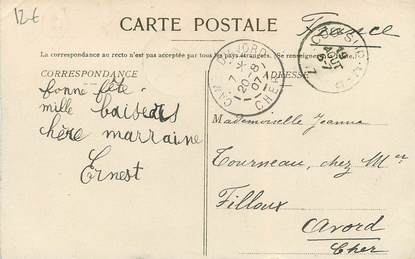 12€
CARTE POSTALE
France
La correspondance au recto n'est pas acceptée par tous les pays étrangers. (Se renseigner
CORRESPONDANCE
ADRESSE
bonne fête
mille baisers
chère marraine
Ernest
20-8
07
CHER
19
AOUT
Mademoiselle Jeanne
Tourneau, chez Mr
Filloux
Avord
Cher